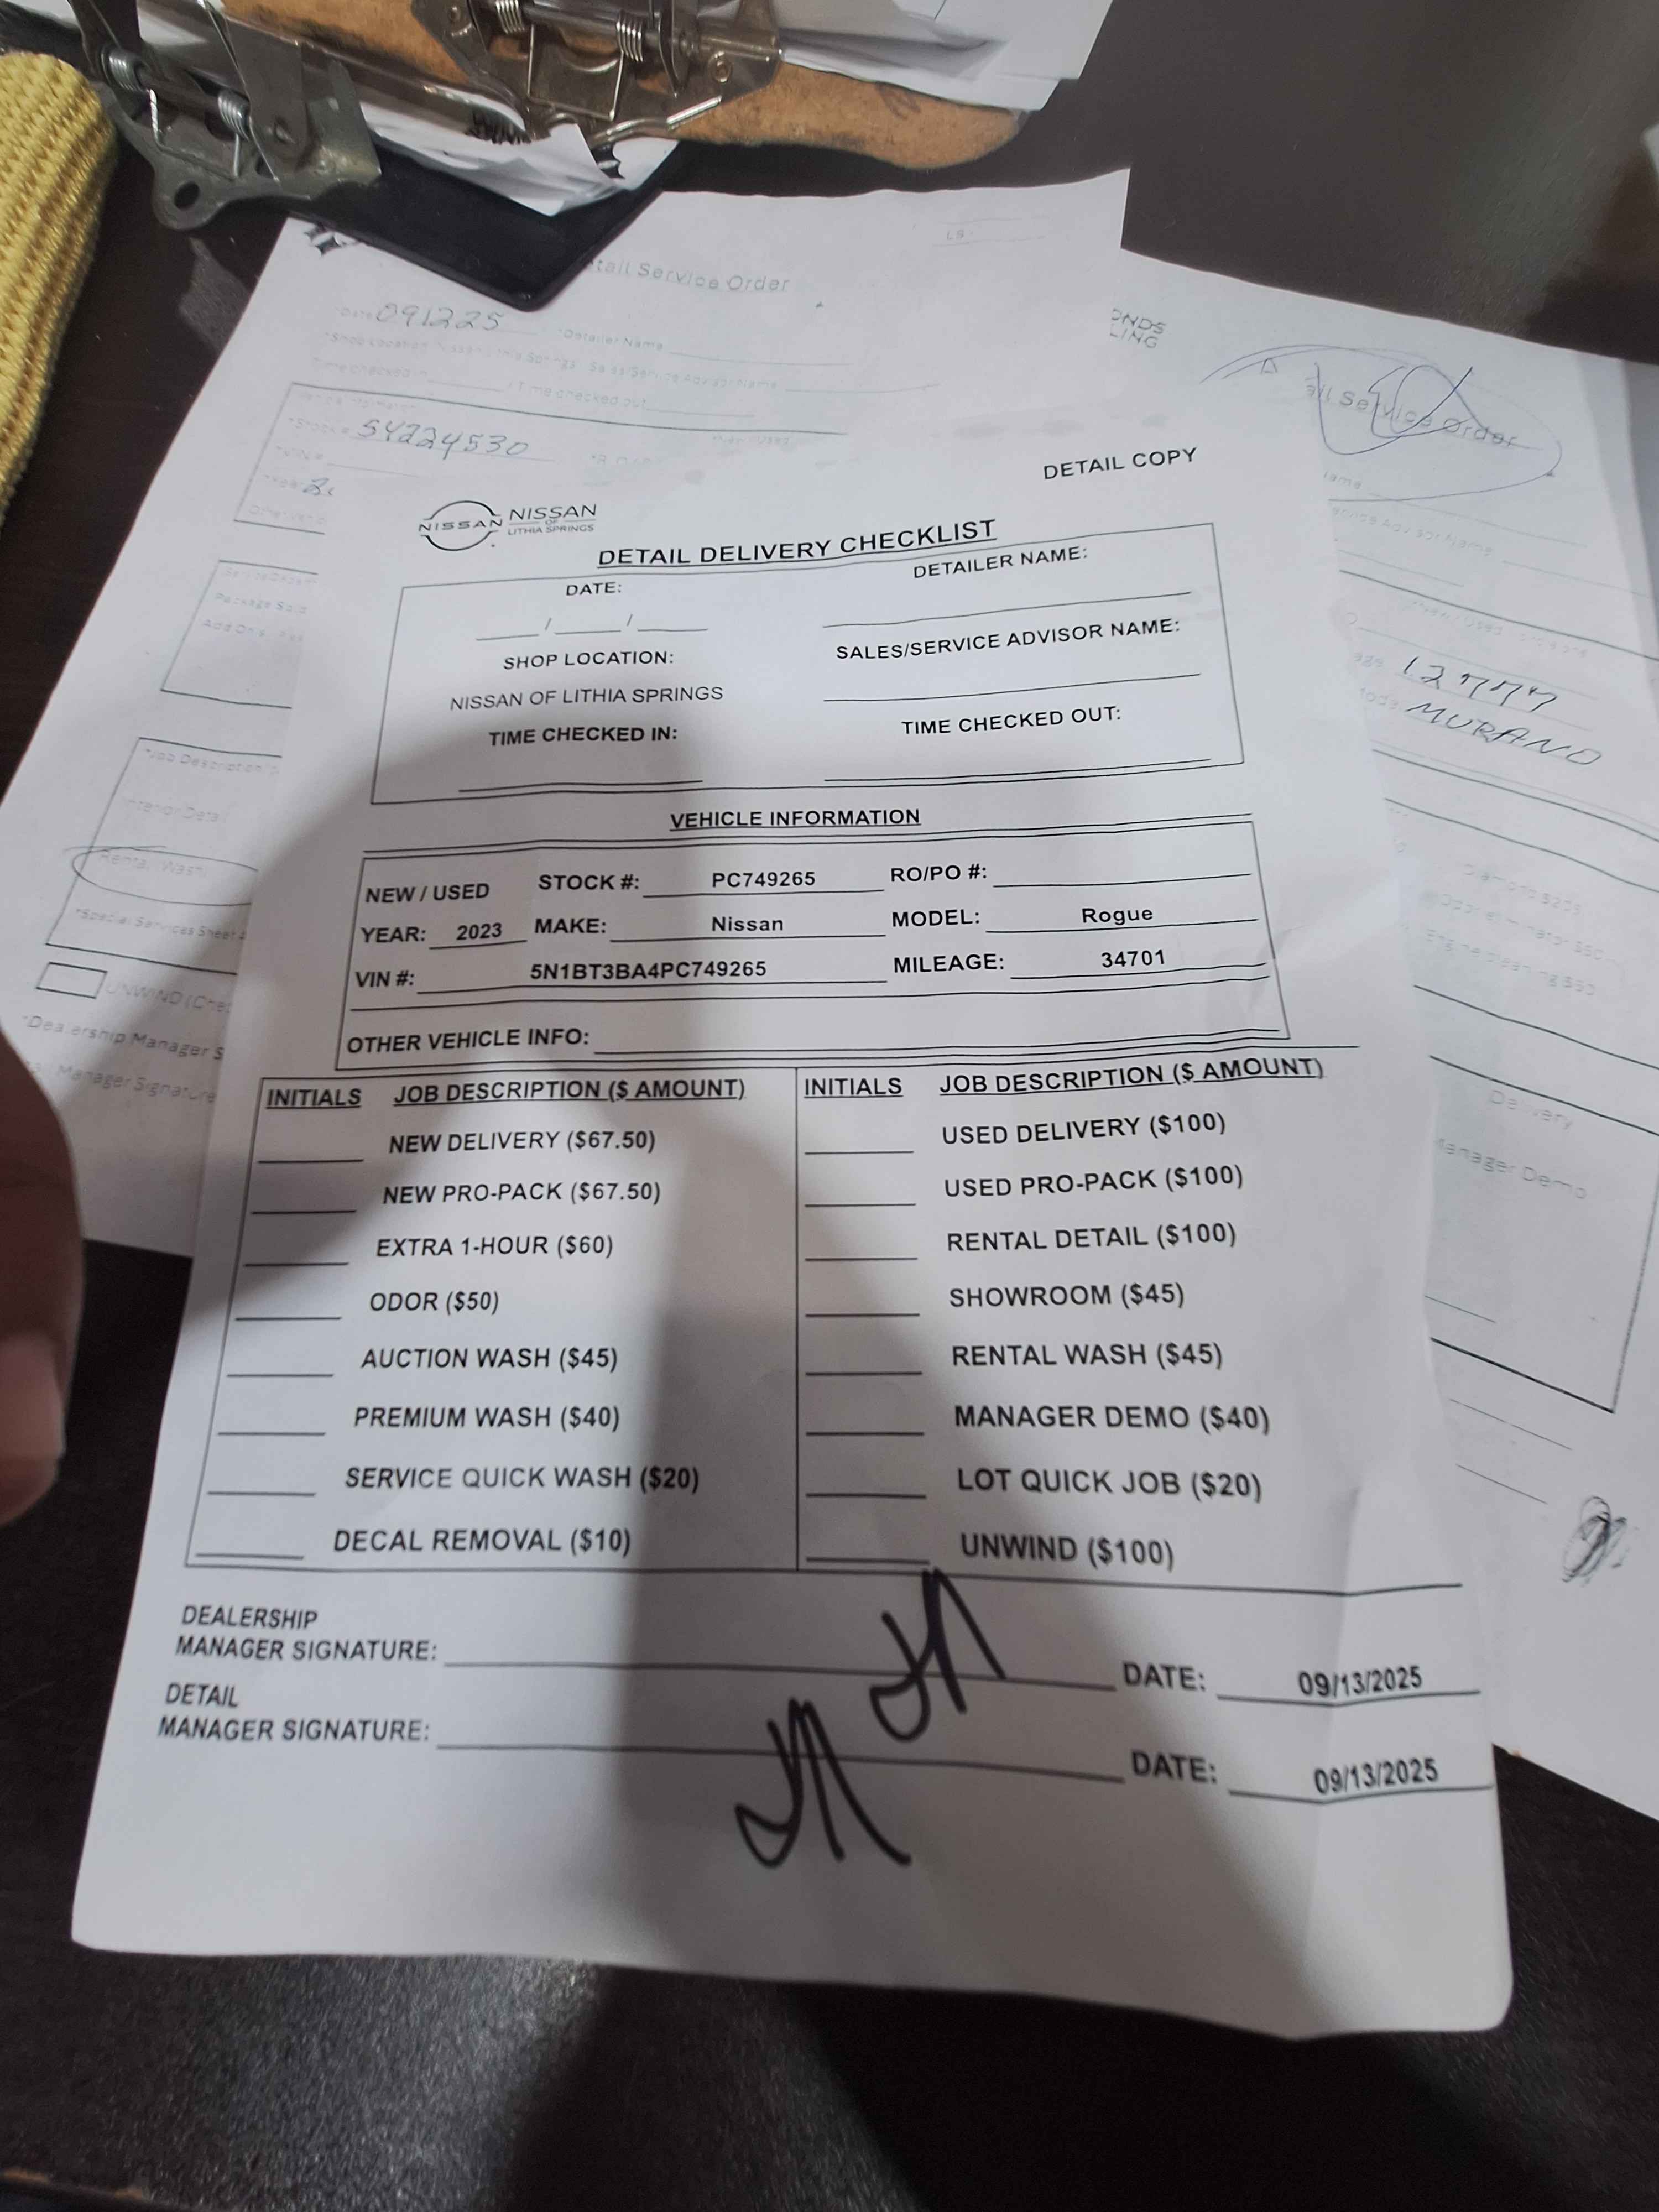 LS -
Detail Service Order
Date 091225 *Detailer Name
Time checked out
*Stock # 54224530
Package Sold
*Job Description
Interior Detail
Rental Wash
*Special Services Sheet
UNWIND (Chec
*Dealership Manager S
Manager Signature
ONDS
LING
ail Service Order
ame
12777
MURANO
Delivery
Manager Demo
DETAIL COPY
NISSAN NISSAN
OF
LITHIA SPRINGS
DETAIL DELIVERY CHECKLIST
DATE: DETAILER NAME:
/ /
SHOP LOCATION: SALES/SERVICE ADVISOR NAME:
NISSAN OF LITHIA SPRINGS
TIME CHECKED IN: TIME CHECKED OUT:
VEHICLE INFORMATION
NEW / USED STOCK #: PC749265 RO/PO #:
YEAR: 2023 MAKE: Nissan MODEL: Rogue
VIN #: 5N1BT3BA4PC749265 MILEAGE: 34701
OTHER VEHICLE INFO:
INITIALS JOB DESCRIPTION ($ AMOUNT) INITIALS JOB DESCRIPTION ($ AMOUNT)
NEW DELIVERY ($67.50) USED DELIVERY ($100)
NEW PRO-PACK ($67.50) USED PRO-PACK ($100)
EXTRA 1-HOUR ($60) RENTAL DETAIL ($100)
ODOR ($50) SHOWROOM ($45)
AUCTION WASH ($45) RENTAL WASH ($45)
PREMIUM WASH ($40) MANAGER DEMO ($40)
SERVICE QUICK WASH ($20) LOT QUICK JOB ($20)
DECAL REMOVAL ($10) UNWIND ($100)
DEALERSHIP
MANAGER SIGNATURE: DATE: 09/13/2025
DETAIL
MANAGER SIGNATURE: DATE: 09/13/2025